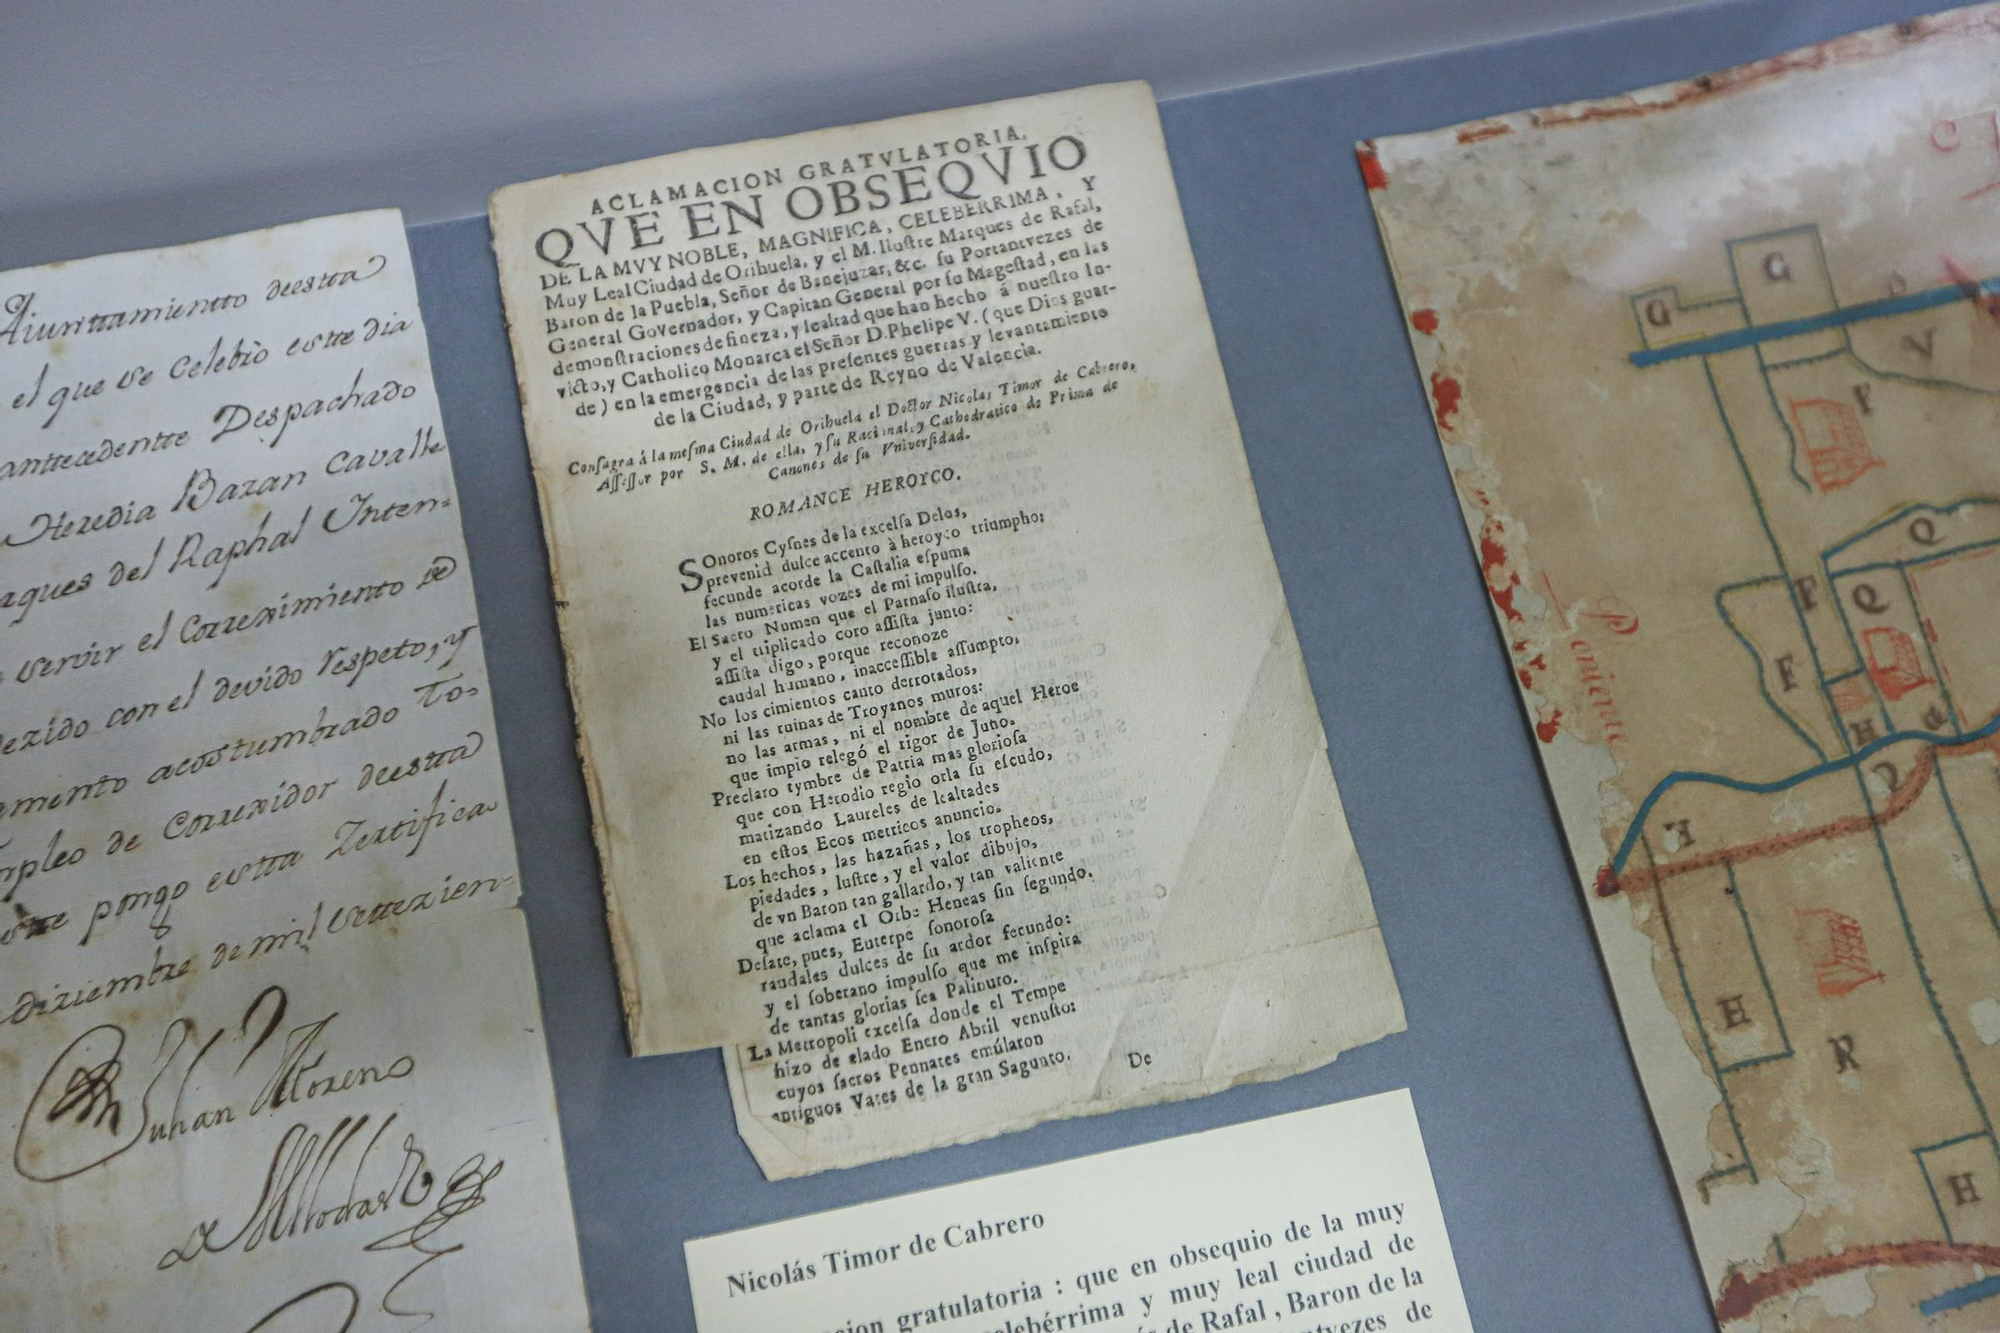 Aiunttamientto deestta
el que se Celebro estte dia
anttecedentte Despachado
Heredia Bazan Cavalle
aques del Raphal Inten-
servir el Correximiento de
ezido con el devido respeto, y
amento acosttumbrado To-
mpleo de Correxidor deestta
pongo estta Zertifica
diziembre de mil settezien-
Juhan Moreno
ACLAMACION GRATVLATORIA,
QVE EN OBSEQVIO
DE LA MVY NOBLE, MAGNIFICA, CELEBERRIMA, Y
Muy Leal Ciudad de Orihuela, y el M. Iluſtre Marques de Rafal,
Baron de la Puebla, Señor de Banejuzar, &c. ſu Portantvezes de
General Governador, y Capitan General por ſu Mageſtad, en las
demonſtraciones de fineza, y lealtad que han hecho á nueſtro In-
victo, y Catholico Monarca el Señor D. Phelipe V. (que Dios guar-
de) en la emergencia de las preſentes guerras y levantamiento
de la Ciudad, y parte de Reyno de Valencia.
Conſagra à la meſma Ciudad de Orihuela el Doctor Nicolas Timor de Cabrero,
Aſſeſſor por S. M. de ella, y ſu Racional, y Cathedratico de Prima de
Canones de ſu Vniverſidad.
ROMANCE HEROYCO.
SOnoros Cyſnes de la excelſa Delos,
prevenid dulce accento à heroyco triumpho;
fecunde acorde la Caſtalia eſpuma
las numericas vozes de mi impulſo.
El Sacro Numen que el Parnaſo iluſtra,
y el triplicado coro aſſiſta junto:
aſſiſta digo, porque reconoze
caudal humano, inacceſſible aſſumpto.
No los cimientos canto derrotados,
ni las ruinas de Troyanos muros:
no las armas, ni el nombre de aquel Heroe
que impio relegó el rigor de Juno.
Preclaro tymbre de Patria mas glorioſa
que con Herodio regio orla ſu eſcudo,
matizando Laureles de lealtades
en eſtos Ecos metricos anuncio.
Los hechos, las hazañas, los tropheos,
piedades, luſtre, y el valor dibujo,
de vn Baron tan gallardo, y tan valiente
que aclama el Orbe Heneas ſin ſegundo.
Deſate, pues, Euterpe ſonoroſa
raudales dulces de ſu ardor fecundo:
y el ſoberano impulſo que me inſpira
de tantas glorias ſea Palinuro.
La Metropoli excelſa donde el Tempe
hizo de elado Enero Abril venuſto:
cuyos ſacros Pennates emúlaron
antiguos Vates de la gran Sagunto.
De
Nicolás Timor de Cabrero
cion gratulatoria : que en obsequio de la muy
celebérrima y muy leal ciudad de
de Rafal , Baron de la
ntvezes de
G
G
V
F
Q
F
Q
F
H
Q
Poniente
H
R
H